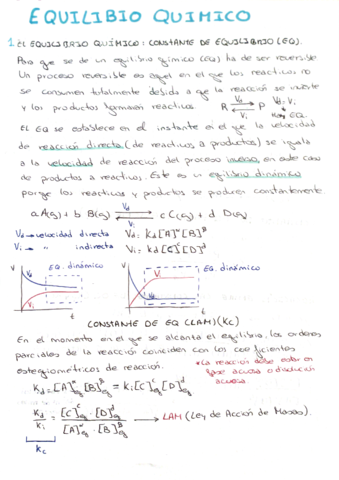 EQUILIBIO QUIMICO
1. EL EQUILIBRIO QUÍMICO: CONSTANTE DE EQUILIBRIO (EQ).
Para que se de un equilibrio químico (EQ) ha de ser reversible
Un proceso reversible es aquel en el que los reactivos no
se consumen totalmente debido a que la reacción se invierte
y los productos forman reactivos R ⇌ P Vd = Vi
Vd
Vi
Hay EQ.
El EQ se establece en el instante en el que la velocidad
de reacción directa (de reactivos a productos) se iguala
a la velocidad de reacción del proceso inverso, en este caso
de productos a reactivos. Este es un equilibrio dinámico
porque los reactivos y productos se producen constantemente.
a A(g) + b B(g) ⇌ c C(g) + d D(g)
Vd
Vi
Vd → velocidad directa Vd = Kd [A]^α [B]^β
Vi → " indirecta Vi = kd [C]^c [D]^d
V EQ. dinámico V EQ. dinámico
Vd Vi
Vi Vd
t t
CONSTANTE DE EQ (LAM) (Kc)
En el momento en el que se alcanza el equilibrio, los ordenes
parciales de la reacción coinciden con los coeficientes
estequiométricos de reacción.
* La reacción debe estar en
fase acuosa o disolución
acuosa.
Kd = [A]^a eq [B]^b eq = Ki [C]^c eq [D]^d eq
Kd / Ki = [C]^c eq · [D]^d eq / [A]^a eq · [B]^b eq → LAM (Ley de Acción de Masas).
Kc